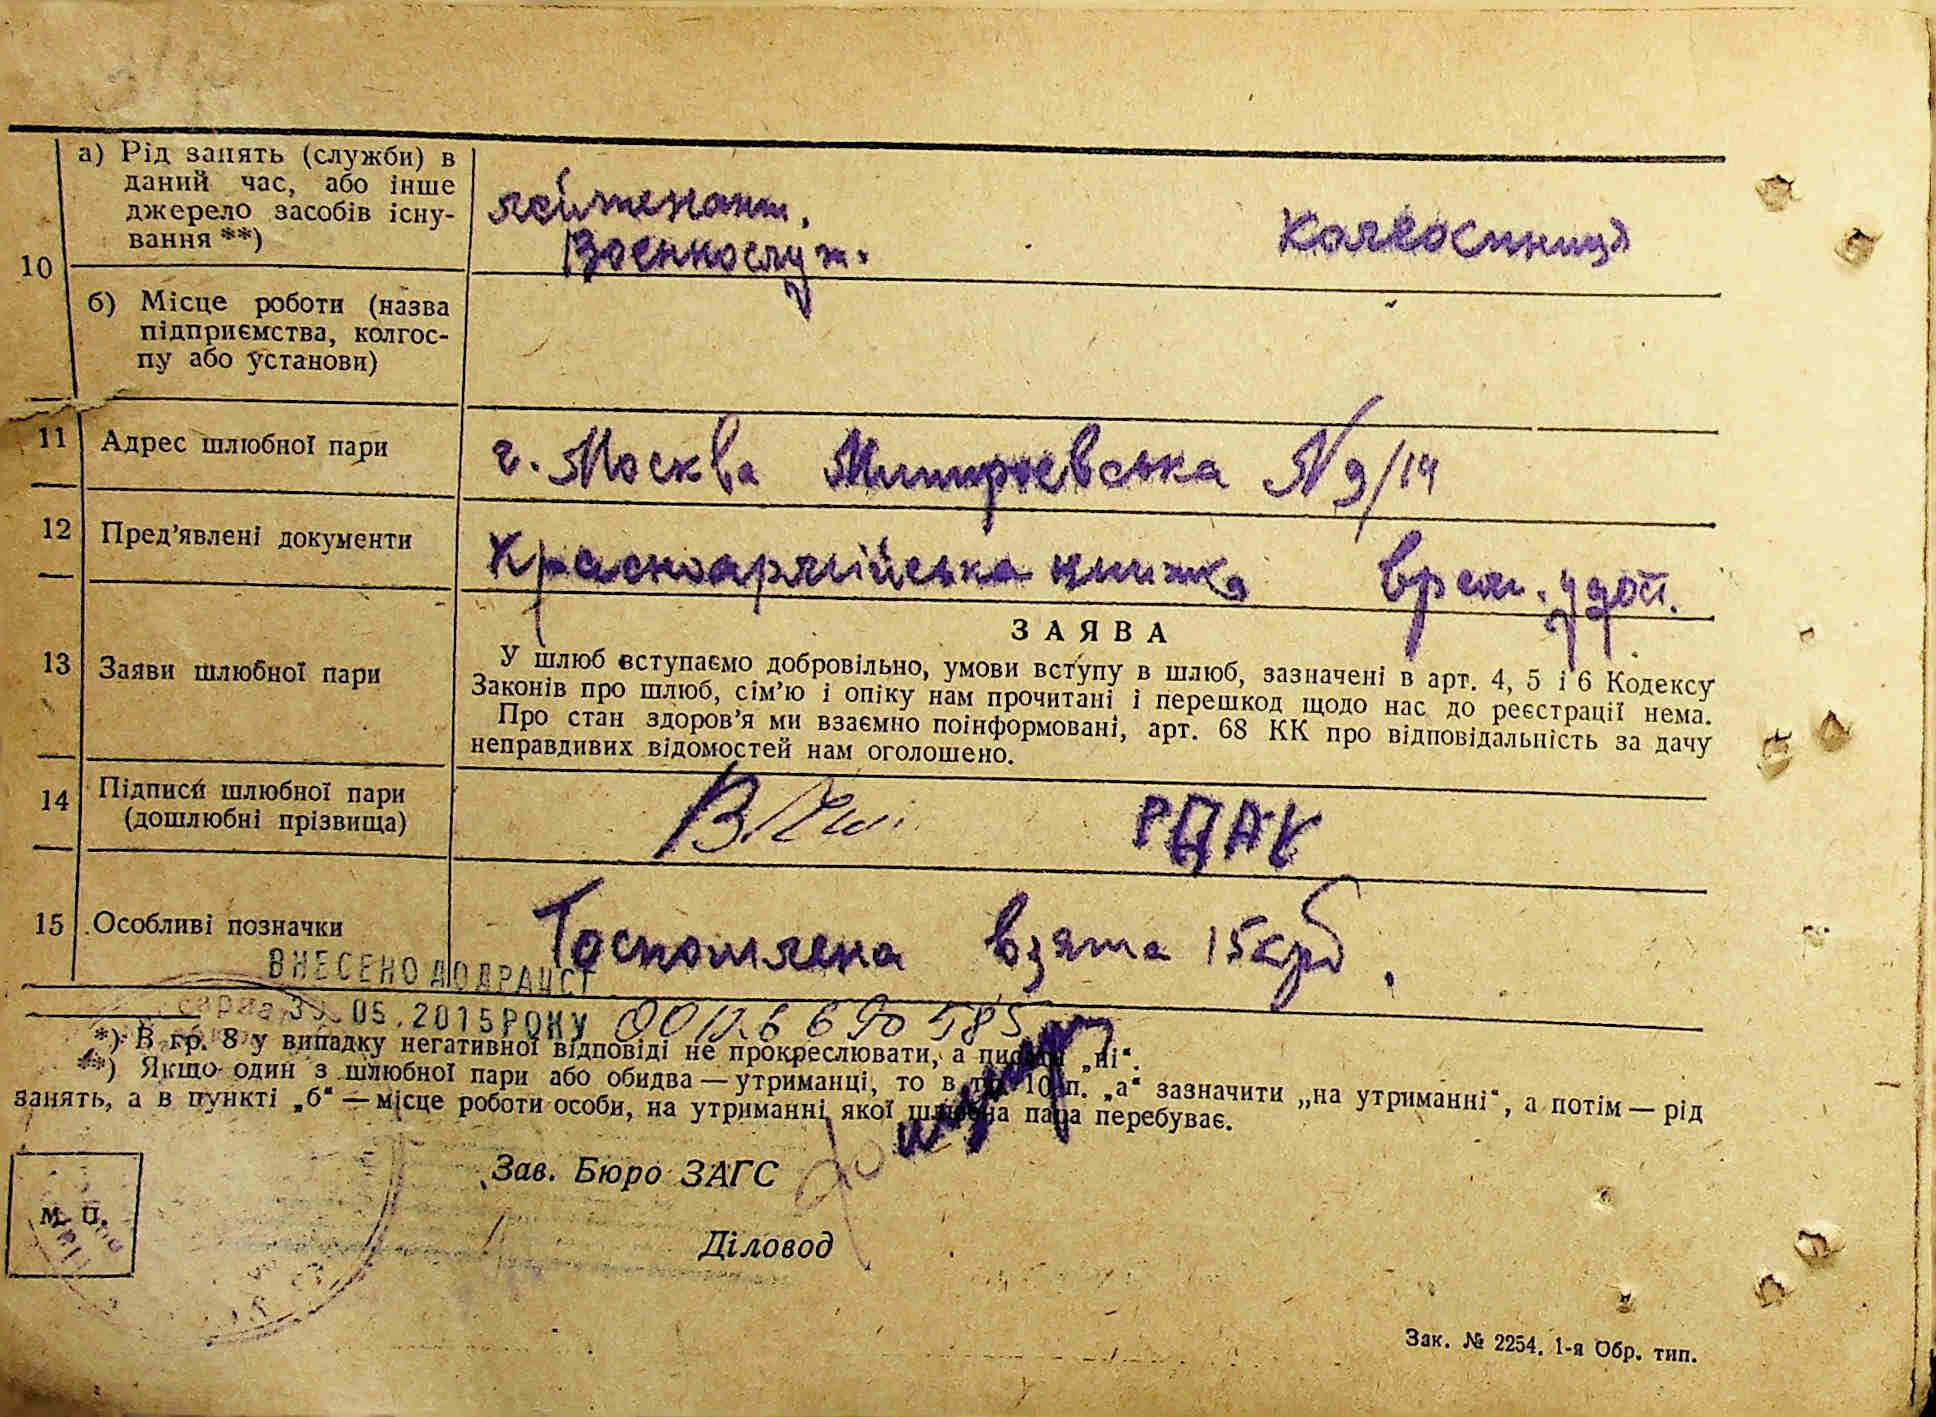 а) Рід занять (служби) в
даний час, або інше
джерело засобів існу-
вання **)
лейтенант.
Военнослуж.
Колгоспниця
10
б) Місце роботи (назва
підприємства, колгос-
пу або установи)
11 Адрес шлюбної пари г. Москва №9/14
12 Пред'явлені документи Красноармійська книжка врем. удост.
ЗАЯВА
13 Заяви шлюбної пари
У шлюб вступаємо добровільно, умови вступу в шлюб, зазначені в арт. 4, 5 і 6 Кодексу
Законів про шлюб, сім'ю і опіку нам прочитані і перешкод щодо нас до реєстрації нема.
Про стан здоров'я ми взаємно поінформовані, арт. 68 КК про відповідальність за дачу
неправдивих відомостей нам оголошено.
14 Підписи шлюбної пари
(дошлюбні прізвища)
15 Особливі позначки Госпошлена взята 15 крб.
ВНЕСЕНО ДО ДРАЦСГ
05.2015 РОКУ
*) В гр. 8 у випадку негативної відповіді не прокреслювати, а писати „ні“.
**) Якщо один з шлюбної пари або обидва — утриманці, то в гр. 10 п. „а“ зазначити „на утриманні“, а потім — рід
занять, а в пункті „б“ — місце роботи особи, на утриманні якої шлюбна пара перебуває.
Зав. Бюро ЗАГС
М. П.
Діловод
Зак. № 2254. 1-я Обр. тип.